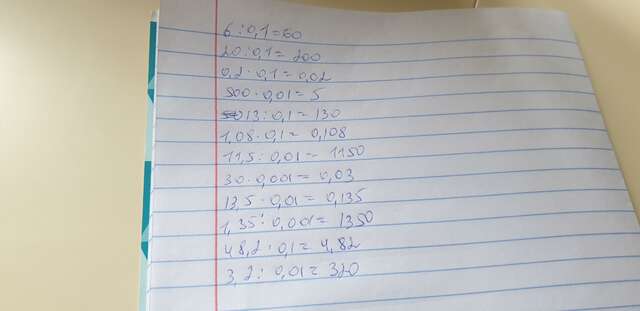 6 : 0,1 = 60
20 : 0,1 = 200
0,2 · 0,1 = 0,02
500 · 0,01 = 5
13 : 0,1 = 130
1,08 · 0,1 = 0,108
11,5 : 0,01 = 1150
30 · 0,001 = 0,03
13,5 · 0,01 = 0,135
1,35 : 0,001 = 1350
48,2 · 0,1 = 4,82
3,2 : 0,01 = 320